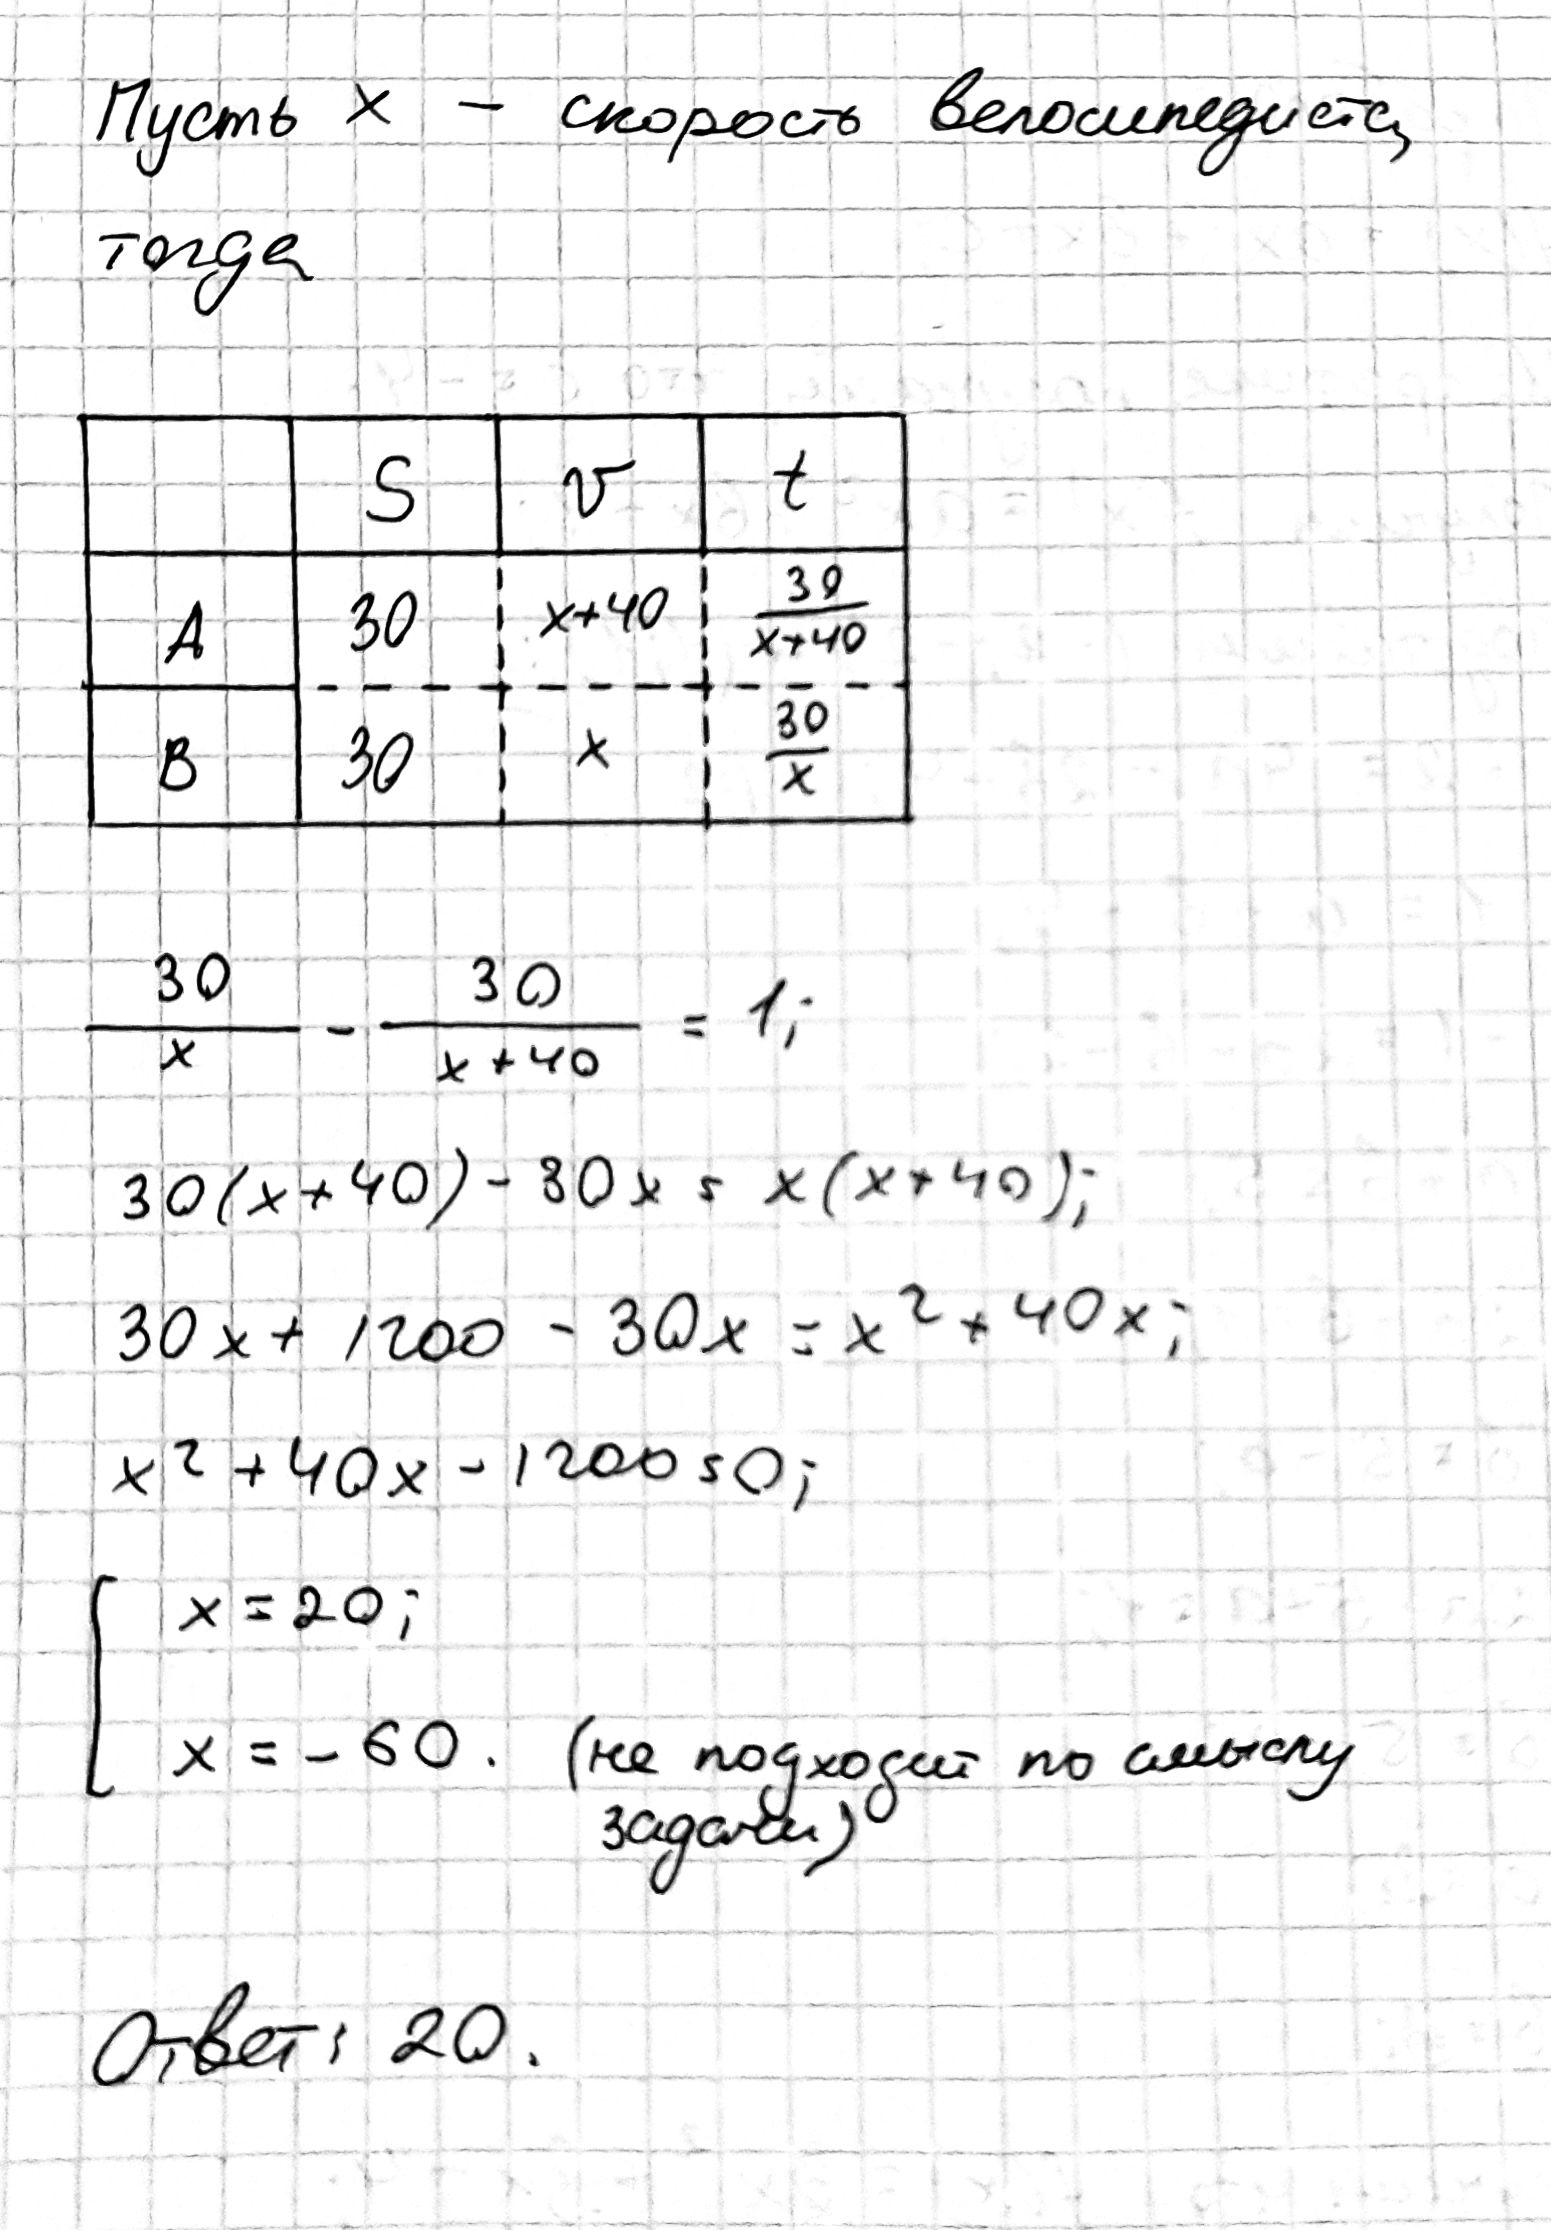 Пусть x – скорость велосипедиста,
тогда
S v t
A 30 x+40 30/(x+40)
B 30 x 30/x
30/x - 30/(x+40) = 1;
30(x+40) - 30x = x(x+40);
30x + 1200 - 30x = x² + 40x;
x² + 40x - 1200 = 0;
[ x = 20;
x = -60. (не подходит по смыслу
задачи)
Ответ: 20.